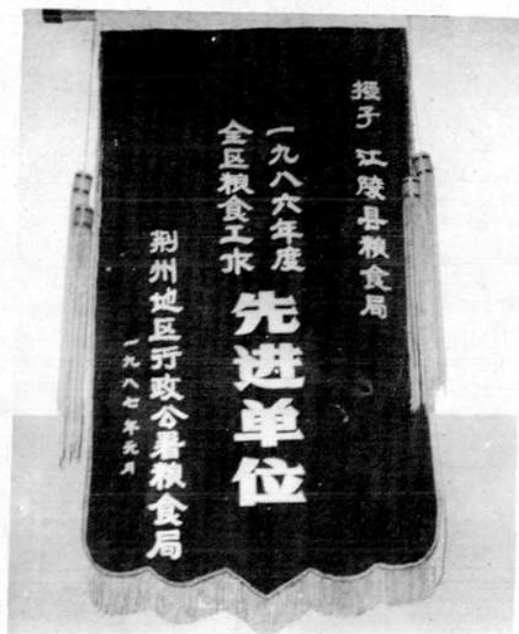 授予 江陵县粮食局
一九八六年度
全区粮食工作
先进单位
荆州地区行政公署粮食局
一九八七年元月